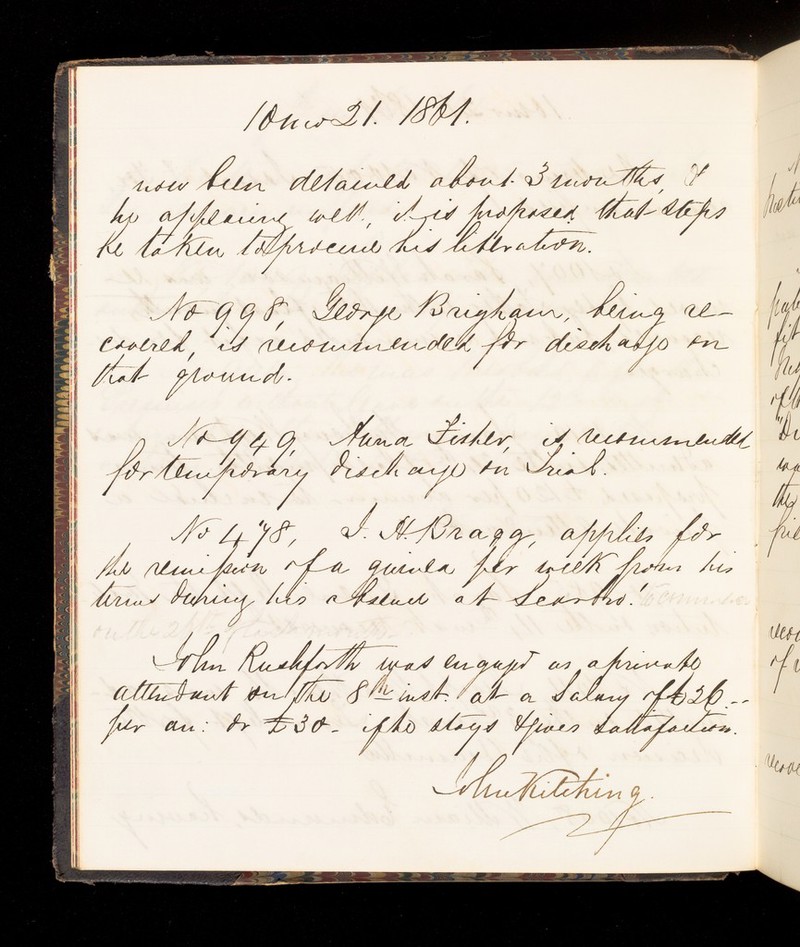 10 mo 21. 1861.
now been detained about 3 months, &
he appearing well, it is proposed that steps
be taken to procure his liberation.
No 998, George Brigham, being re-
covered, is recommended for discharge on
that ground.
No 949, Anna Fisher, is recommended
for temporary discharge on Trial.
No 478, J. H. Bragg, applies for
the remission of a guinea per week from his
terms during his absence at Scarbro'.
on the
John Rushforth was engag'd as a private
attendant on the 8th inst. at a Salary of £26.--
per an: or £30 - if he stays & gives satisfaction.
John Kitching.